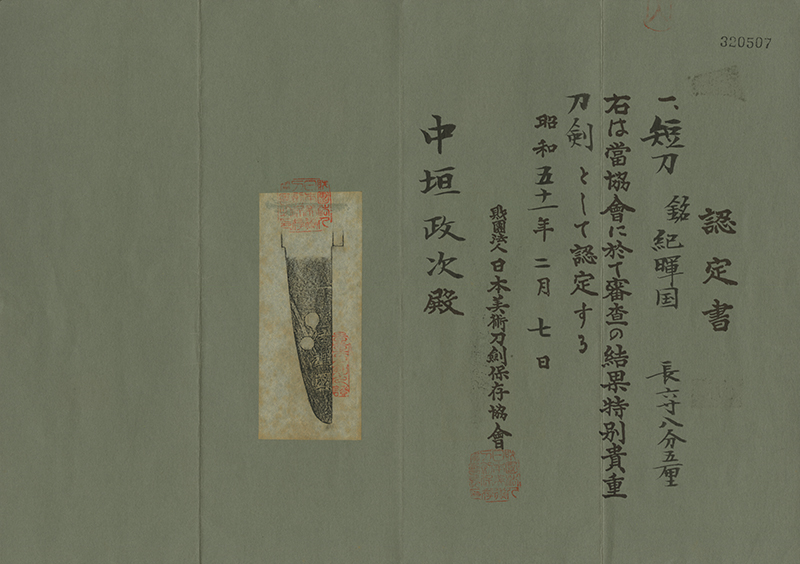 320507
認定書
一、短刀 銘 紀暉国 長六寸八分五厘
右は當協會に於て審査の結果特別貴重
刀劍として認定する
昭和五十一年二月七日
財團法人日本美術刀劍保存協會
中垣政次殿